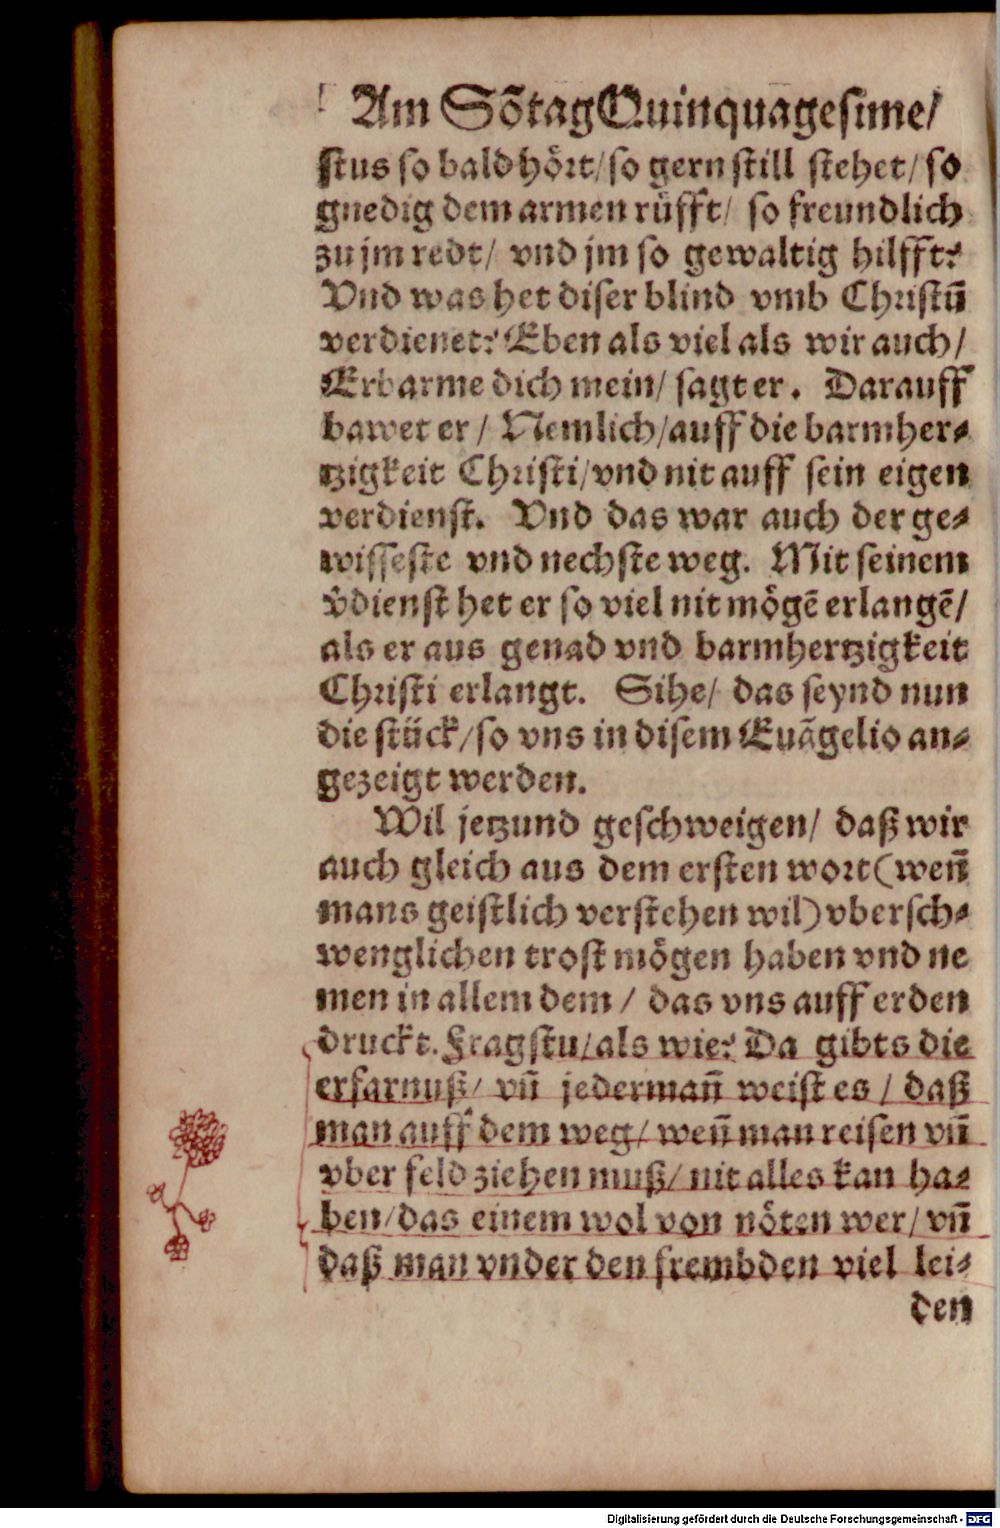 Am Sõtag Quinquagesime/
stus so bald hört/so gern still stehet/so
gnedig dem armen rüfft/ so freundlich
zu jm redt/ vnd jm so gewaltig hilfft?
Vnd was het diser blind vmb Christū
verdienet? Eben als viel als wir auch/
Erbarme dich mein/ sagt er. Darauff
bawet er/ Nemlich/auff die barmher⸗
tzigkeit Christi/vnd nit auff sein eigen
verdienst. Vnd das war auch der ge⸗
wisseste vnd nechste weg. Mit seinem
v̊dienst het er so viel nit mögē erlangē/
als er aus genad vnd barmhertzigkeit
Christi erlangt. Sihe/ das seynd nun
die stück/so vns in disem Euãgelio an⸗
gezeigt werden.
Wil jetzund geschweigen/ daß wir
auch gleich aus dem ersten wort(weñ
mans geistlich verstehen wil)vbersch⸗
wenglichen trost mögen haben vnd ne
men in allem dem/ das vns auff erden
druckt. Fragstu/als wie? Da gibts die
erfarnuß/ vñ jedermañ weist es/ daß
man auff dem weg/ weñ man reisen vñ
vber feld ziehen muß/ nit alles kan ha⸗
ben/das einem wol von nöten wer/ vñ
daß man vnder den frembden viel lei⸗
den
Digitalisierung gefördert durch die Deutsche Forschungsgemeinschaft - DFG